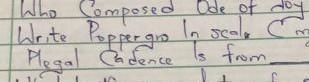 Who Composed Ode of Joy
Write Poppergio In scale C m
Plegal Cadence Is from